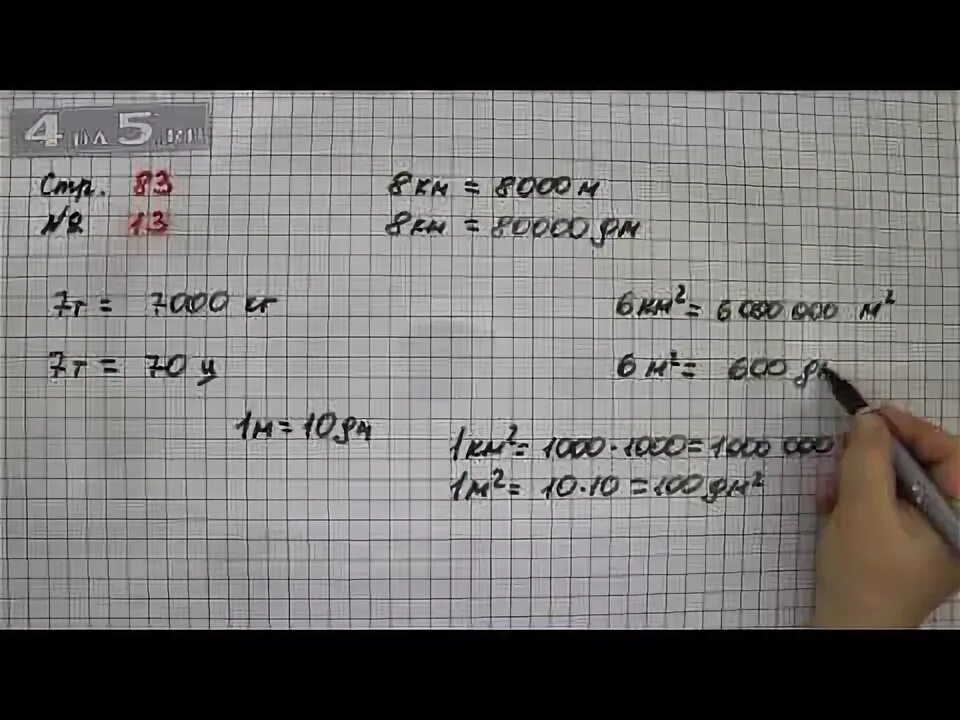 4 на 5.
Стр. 83
№ 13
8км = 8000 м
8км = 80000 дм
7т = 7000 кг
7т = 70 ц
6 км² = 6 000 000 м²
6 м² = 600 д
1м = 10 дм
1км² = 1000·1000 = 1000 000
1м² = 10·10 = 100 дм²